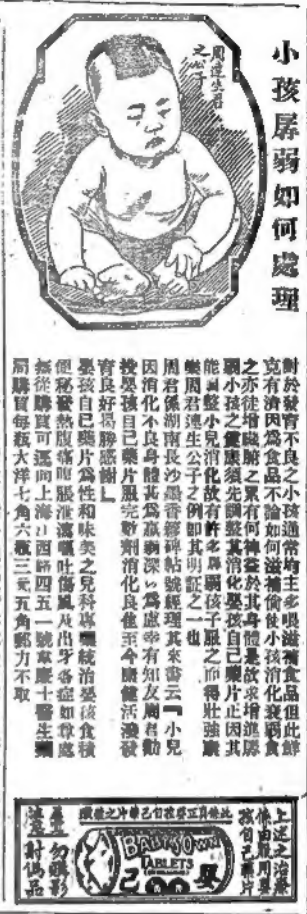 小孩孱弱如何處理
周連生君
之公子
對於發育不良之小孩通常均主多啜滋補食品但此鮮
克有濟因爲食品不論如何滋補倘使小孩消化衰弱食
之亦徒增臟腑之累有何裨益於其身體是故求增進孱
弱小孩之健康須先調整其消化嬰孩自己藥片正因其
能調整小兒消化故有許多孱弱孩子服之而得壯強康
樂周君連生公子之例即其明証之一也
周君係湖南長沙墨香簃碑帖號經理其來書云『小兒
因消化不良身體甚爲羸弱深以爲慮幸有知友周君勸
授嬰孩自己藥片服完數劑消化良佳至今康健活潑發
育良好曷勝感謝』
嬰孩自己藥片爲性和味美之兒科專藥統治嬰孩食積
便秘發熱腹痛腹脹泄瀉嘔吐傷風及出牙各症如尊處
無從購買可逕向上海江西路四五一號韋廉士醫生藥
局購買每瓶大洋七角六瓶三元五角郵力不取
上述之治療
係由服用嬰
孩自己藥片
此係真正嬰孩自己藥片之樣瓶
BABY'S OWN
TABLETS
嬰
己
勿購影
射僞品